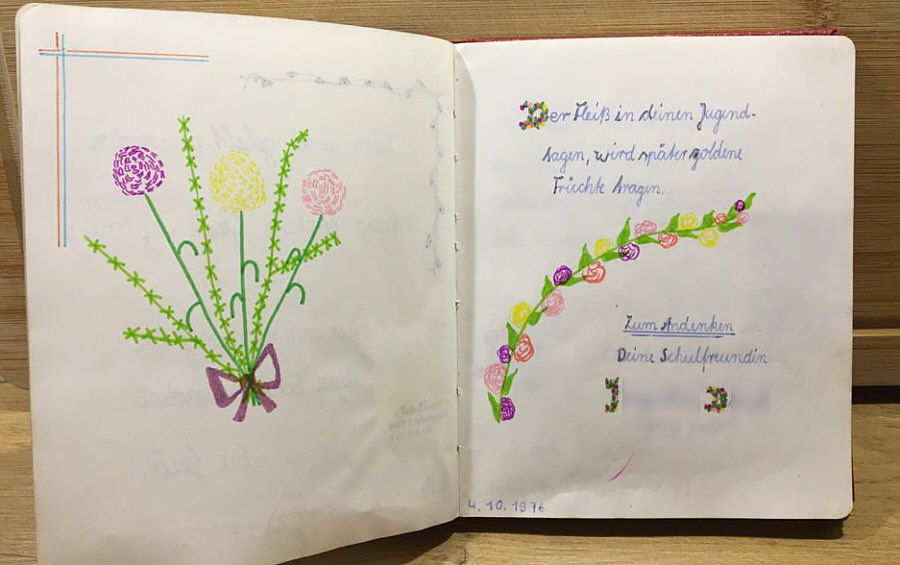 Der Fleiß in deinen Jugend-
tagen, wird später goldene
Früchte tragen.
Zum Andenken
Deine Schulfreundin
4.10.1976